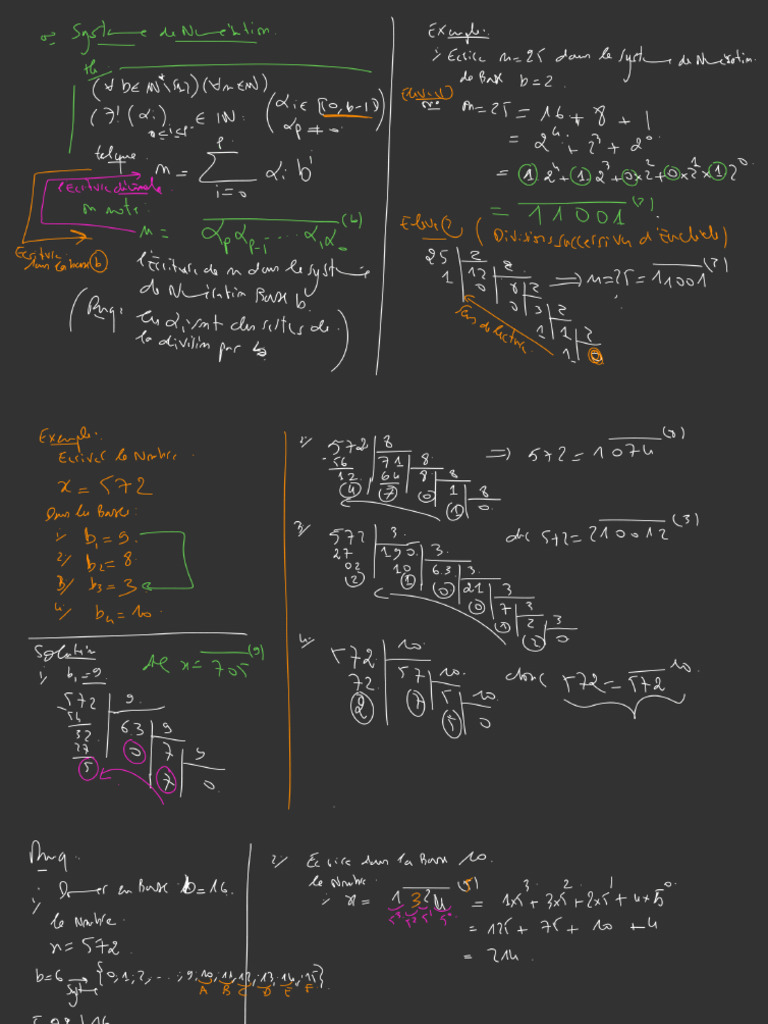 Système de Numération
th:
(∀ b ∈ ℕ*\{1}) (∀ n ∈ ℕ)
(∃! (αi) 0≤i≤p ∈ ℕ: (αi ∈ [0, b-1] αp ≠ 0)
tel que n = Σ (i=0 → p) αi b^i
l'Ecriture décimale
on note:
n = αp αp-1 ..... α1 α0 (b)
Ecriture dans la base b
l'Ecriture de n dans le système
de Numération Base b.
(Rmq: les αi sont des restes de
la division par b)
Exemple:
1/ Ecrire n=25 dans le système de Numération
de Base b=2.
n=25 = 16 + 8 + 1
= 2^4 + 2^3 + 2^0
= 1 2^4 + 1 2^3 + 0×2^2 + 0×2^1 × 1 2^0
= 11001 (2)
(Divisions successives d'Euclide)
25 2
1 12 2
0 6 2
0 3 2
1 1 2
1 0
⟹ n=25 = 11001 (2)
Sens de lecture
Exemple:
Ecrire le Nombre
x = 572
Dans les Bases
1/ b1 = 9
2/ b2 = 8
3/ b3 = 3
4/ b4 = 10
Solution
1/ b1 = 9
x = 705 (9)
572 9
54 63 9
32 0 7 9
27 7 0
5
2/ 572 8
56 71 8
12 64 8 8
4 7 0 1 8
1 0
⟹ 572 = 1074 (8)
3/ 572 3
27 190 3
02 10 63 3
2 1 0 21 3
0 7 3
1 2 3
2 0
572 = 210012 (3)
4. 572 10
72 57 10
2 7 5 10
5 0
donc 572 = 572 10
Rmq.
1/ Donner en Base b=16
le Nombre
n = 572
b=6 Système {0,1,2,...,9,10,11,12,13,14,15}
A B C D E F
572 16
2/ Ecrire dans la Base 10
le Nombre
1/ x = 1324 (5) = 1×5^3 + 3×5^2 + 2×5^1 + 4×5^0
5^3 5^2 5^1 5^0
= 125 + 75 + 10 + 4
= 214.